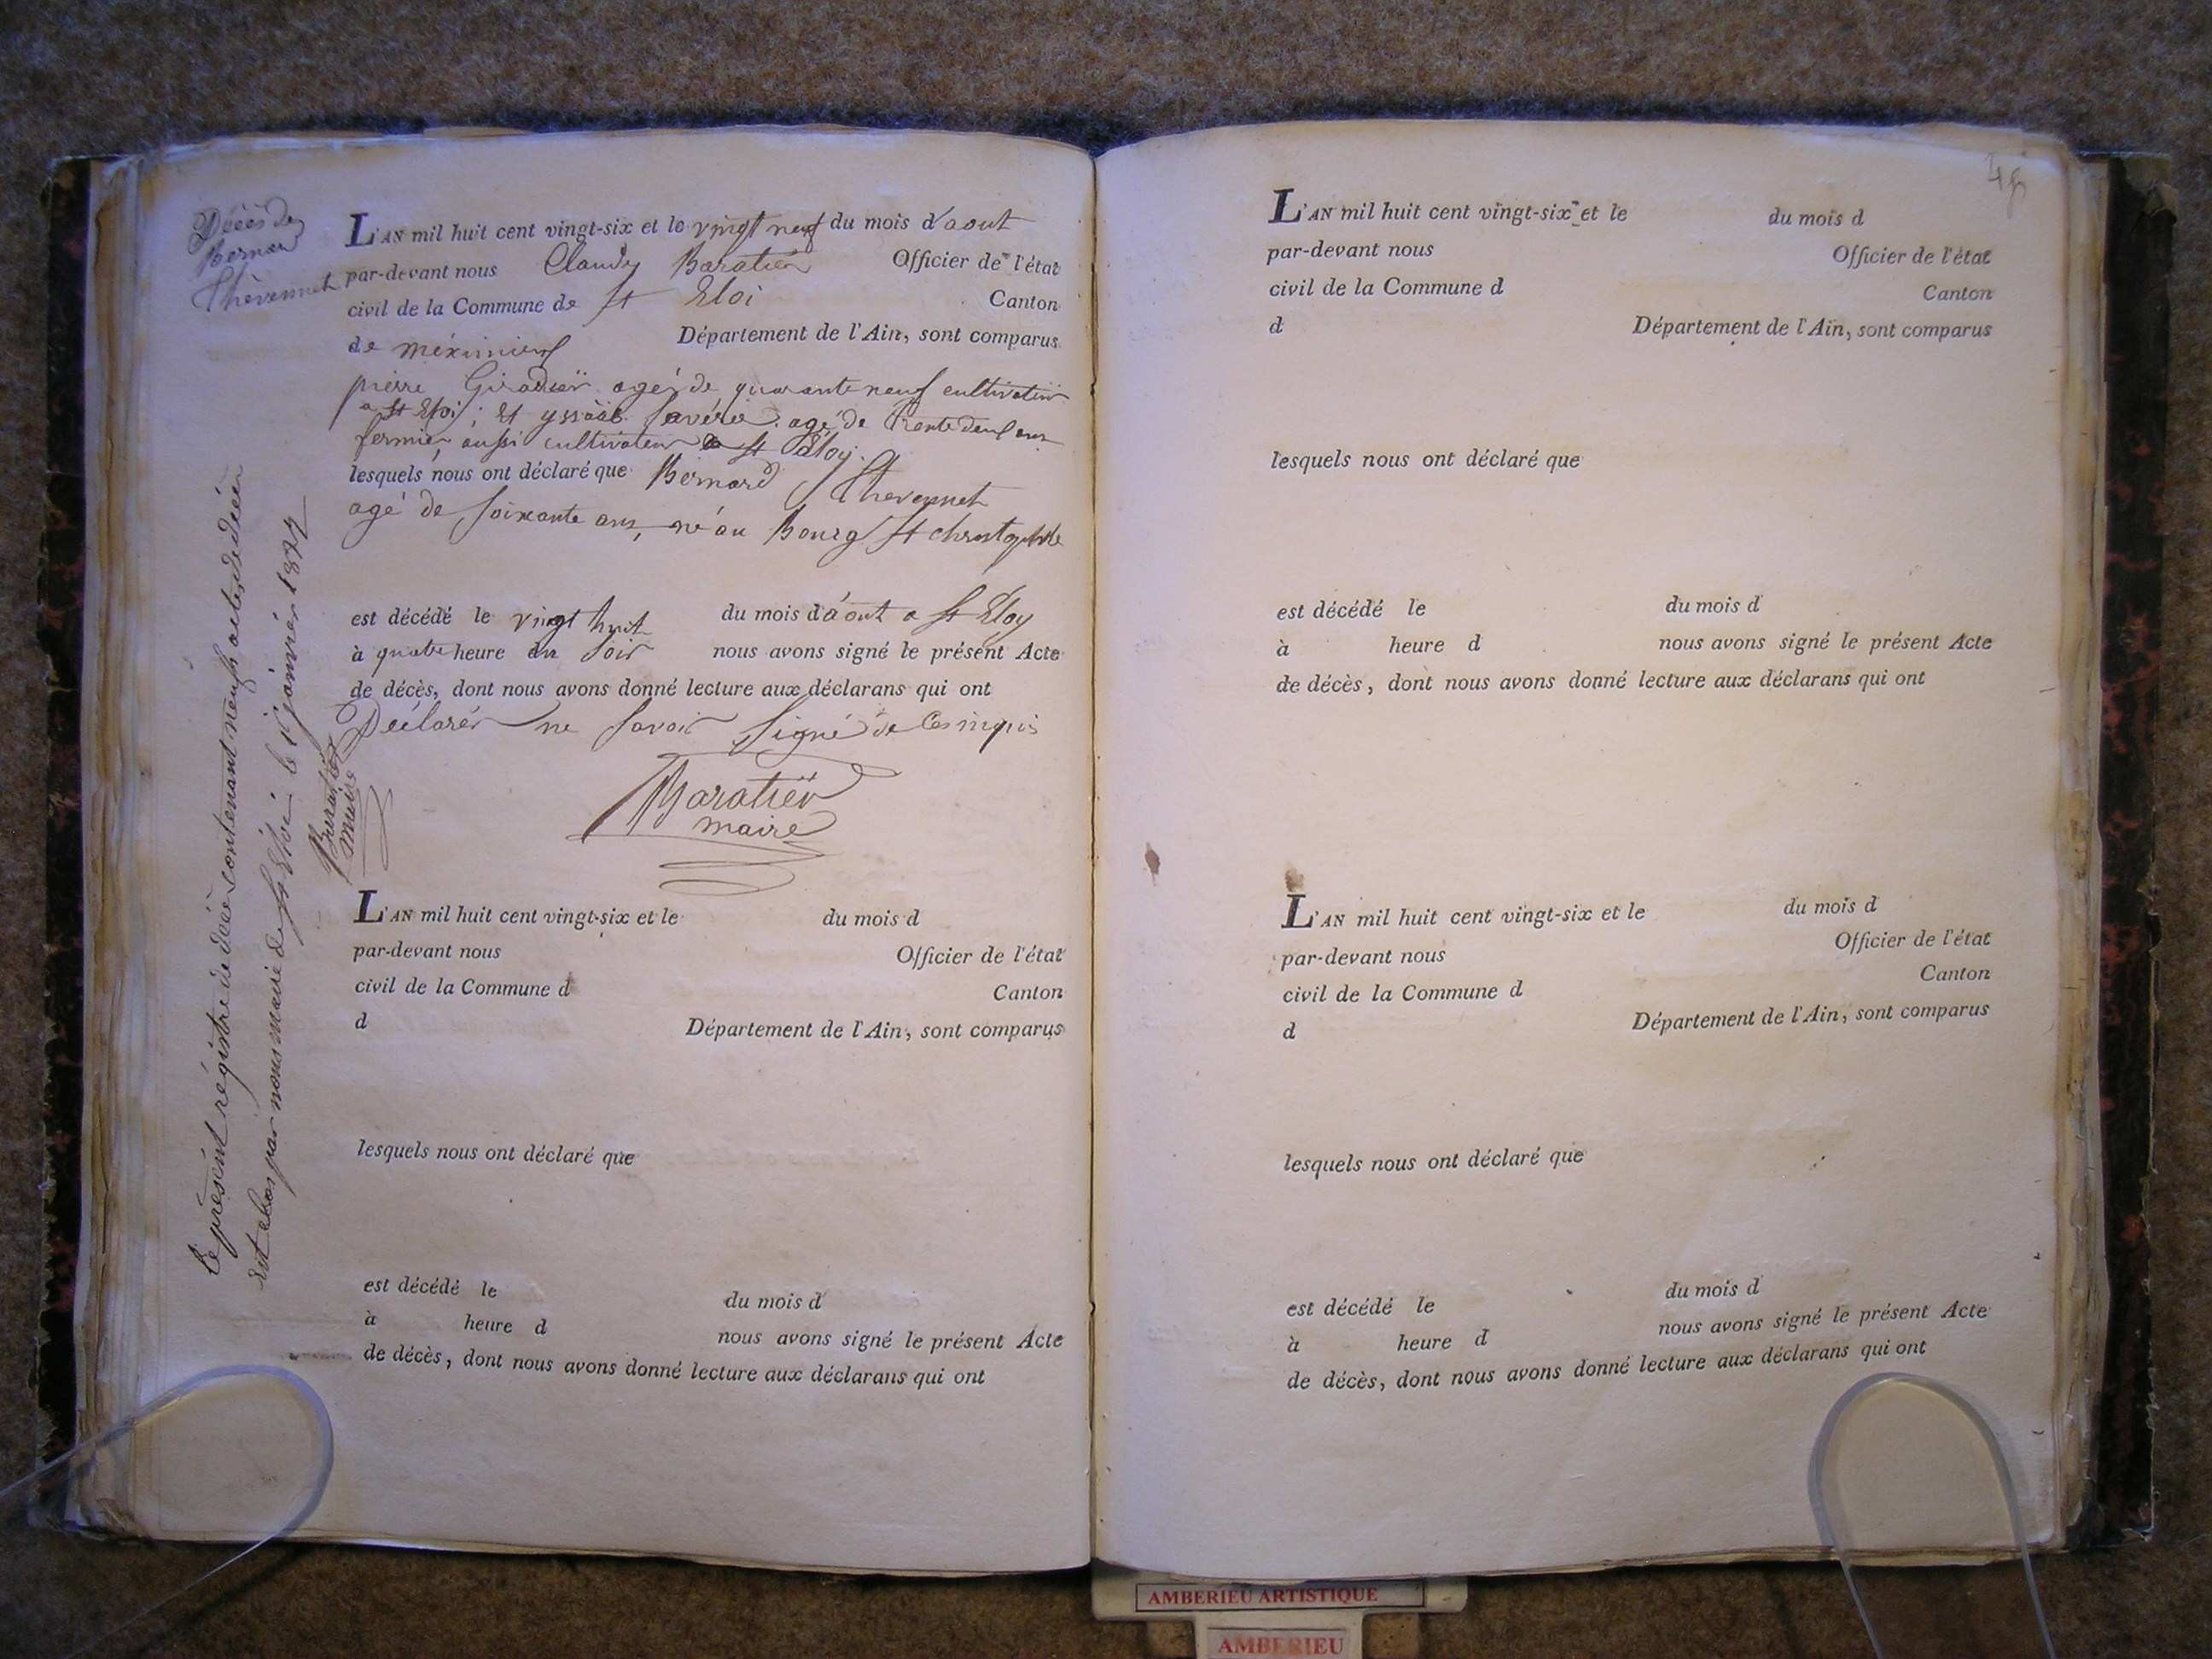 Décès de
Bernard
Thèvennet
L'AN mil huit cent vingt-six et le vingt neuf du mois d'aout
par-devant nous Claude Baratier Officier de l'état
civil de la Commune de St Eloi Canton
de méximieux Département de l'Ain, sont comparus
pierre agé de quarante neuf cultivateur
a St Eloi; Et agé de trente deux ans
fermier, aussi cultivateur a St Eloy.
lesquels nous ont déclaré que Bernard Thevennet
agé de soixante ans, né au Bourg St christophle
est décédé le vingt huit du mois d'aout a St Eloy
à quatre heure du soir nous avons signé le présent Acte
de décès, dont nous avons donné lecture aux déclarans qui ont
Déclarés ne savoir signé de
Baratier
maire
Le présent régistre de décè contenant neuf actes de décès
est clos par nous maire de St Eloi le janvier 1827
Baratier
maire
L'AN mil huit cent vingt-six et le du mois d
par-devant nous Officier de l'état
civil de la Commune d Canton
d Département de l'Ain, sont comparus
lesquels nous ont déclaré que
est décédé le du mois d
à heure d nous avons signé le présent Acte
de décès, dont nous avons donné lecture aux déclarans qui ont
L'AN mil huit cent vingt-six et le du mois d
par-devant nous Officier de l'état
civil de la Commune d Canton
d Département de l'Ain, sont comparus
lesquels nous ont déclaré que
est décédé le du mois d
à heure d nous avons signé le présent Acte
de décès, dont nous avons donné lecture aux déclarans qui ont
L'AN mil huit cent vingt-six et le du mois d
par-devant nous Officier de l'état
civil de la Commune d Canton
d Département de l'Ain, sont comparus
lesquels nous ont déclaré que
est décédé le du mois d
à heure d nous avons signé le présent Acte
de décès, dont nous avons donné lecture aux déclarans qui ont
AMBERIEU ARTISTIQUE
AMBERIEU